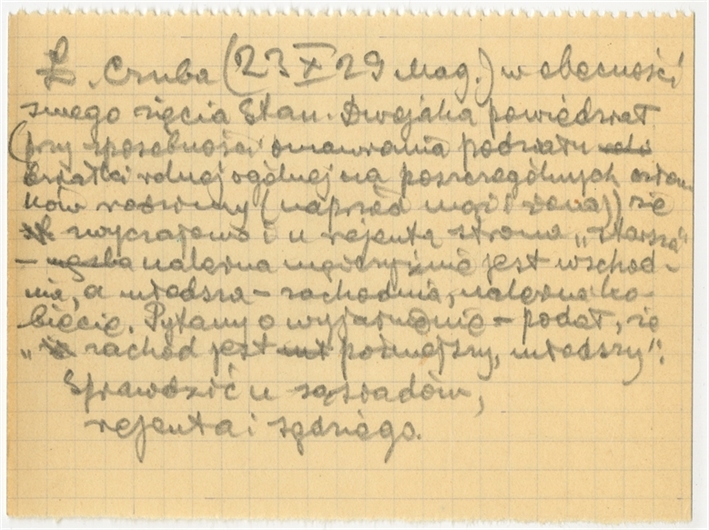 Ł. Czuba (23 X 29 Mag.) w obecności
swego zięcia Stan. Dwojaka powiedział
(przy sposobności omawiania podziału do
działki rolnej ogólnej na poszczególnych człon
ków rodziny (naprzód mąż i żona)) że
zwyczajowo i u rejenta strona „starsza"
– męska należna mężczyźnie jest wschod-
nia, a młodsza – zachodnia, należna ko-
biecie. Pytany o wyjaśnienie – podał, że
„zachód jest późniejszy, młodszy".
Sprawdzić u sąsiadów,
rejenta i sędziego.